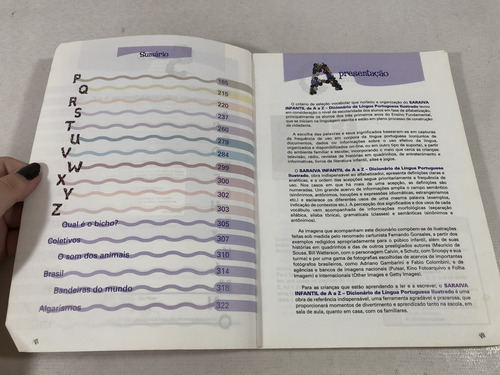 Sumário
P
165
Q
215
R
220
S
237
T
260
U
279
V
284
W
299
X
300
Y
302
Z
303
Qual é o bicho?
305
Coletivos
307
O som dos animais
310
Brasil
314
Bandeiras do mundo
318
Algarismos
322
VI
Apresentação
O critério de seleção vocabular que norteou a organização do SARAIVA
INFANTIL de A a Z – Dicionário da Língua Portuguesa Ilustrado levou
em consideração o nível de escolaridade dos alunos em fase de alfabetização,
principalmente os alunos dos três primeiros anos do Ensino Fundamental,
que se iniciam na linguagem escrita e estão em pleno processo de construção
de cidadania.
A escolha das palavras e seus significados basearam-se em capturas
de frequência de uso em corpus da língua portuguesa,
documentos, dados ou informações sobre o uso efetivo da língua,
organizados e disponibilizados on-line, ou em outro tipo de suporte, a partir
do ambiente familiar e escolar, incorporando o meio que cerca as crianças:
televisão, rádio, revistas de histórias em quadrinhos, de entretenimento e
informação, livros de literatura infantil, sites e jogos.
O SARAIVA INFANTIL de A a Z – Dicionário da Língua Portuguesa
Ilustrado, obra indispensável ao alfabetizador, apresenta definições claras e
analíticas, e a ordem das acepções segue prioritariamente a frequência de
uso. Nos casos em que há mais de uma acepção, as definições são
numeradas. Um grande acervo de informações amplia o campo semântico
(sinônimos, antônimos, locuções e expressões idiomáticas, estrangeirismos
etc.) e esclarece os diferentes usos de uma mesma palavra (exemplos,
indicação de contextos etc.). A percepção dos significados e dos usos de cada
vocábulo vem acompanhada de informações morfológicas (separação
silábica, sílaba tônica), gramaticais (classes) e semânticas (sinônimos e
antônimos).
As imagens que acompanham este dicionário compõem-se de ilustrações
feitas sob medida pelo renomado cartunista Fernando Gonsales, a partir dos
exemplos redigidos apropriadamente para o público infantil, além de suas
histórias em quadrinhos e das de outros prestigiados autores (Mauricio de
Sousa, Bill Watterson, com o personagem Calvin, e Schulz, com Snoopy e sua
turma) e por uma gama de fotografias escolhidas de acervos de importantes
fotógrafos brasileiros, como Adriano Gambarini e Fabio Colombini, e de
agências e bancos de imagens nacionais (Pulsar, Kino Fotoarquivo e Folha
Imagem) e internacionais (Other Images e Getty Images).
Para as crianças que estão aprendendo a ler e a escrever, o SARAIVA
INFANTIL de A a Z – Dicionário da Língua Portuguesa Ilustrado é uma
obra de referência indispensável, uma ferramenta agradável e prazerosa, que
proporcionará momentos de divertimento e aprendizado tanto na escola, em
sala de aula, quanto em casa, com os familiares.
VII